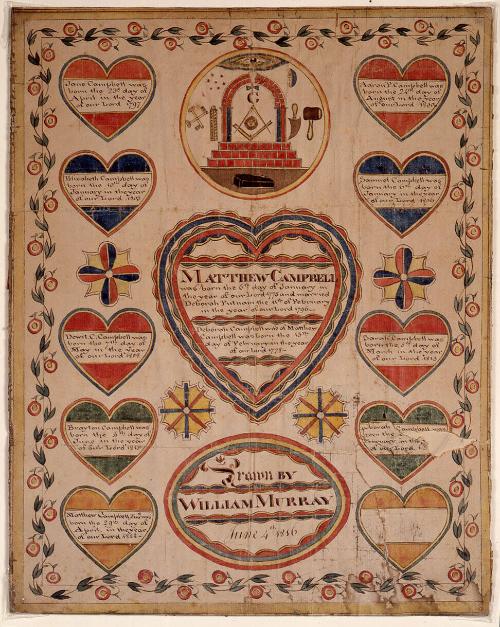 Jane Campbell was
born the 23d day of
April in the year
of our Lord 1797
Aaron P. Campbell was
born the 24th day of
August in the year
of our Lord
Elizabeth Campbell was
born the 10th day of
January in the year
of our Lord
Samuel Campbell was
born the day of
January in the year
of our Lord
MATTHEW CAMPBELL
was born the day of January in
the year of our Lord 1773 and married
Deborah Putnam the 11th of February
in the year of our Lord
Deborah Campbell wife of Matthew
Campbell was born the 15th
day of February in the year
of our Lord 1778
Dewit C. Campbell was
born the day of
May in the year
of our Lord
Sarah Campbell was
born the day of
March in the year
of our Lord 1813
Brayton Campbell was
born the day of
June in the year
of our Lord
Campbell was
born the
in the
of our Lord
Drawn BY
WILLIAM MURRAY
June 4th 1816
Matthew Campbell was
born the 29th day of
April in the year
of our Lord 1822